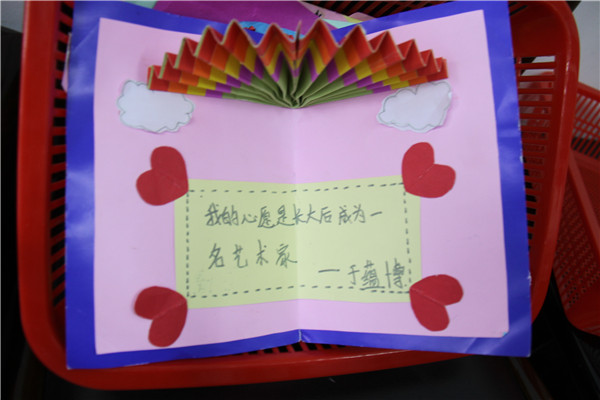 我的心愿是长大后成为一
名艺术家
——于蕴博